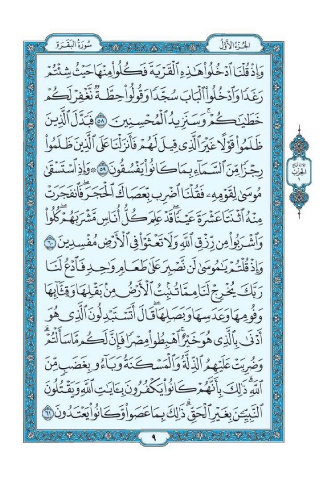 سُورَةُ البَقَرَةِ
الجُزْءُ الأَوَّلُ
وَإِذْ قُلْنَا ٱدْخُلُوا۟ هَٰذِهِ ٱلْقَرْيَةَ فَكُلُوا۟ مِنْهَا حَيْثُ شِئْتُمْ
رَغَدًا وَٱدْخُلُوا۟ ٱلْبَابَ سُجَّدًا وَقُولُوا۟ حِطَّةٌ نَّغْفِرْ لَكُمْ
خَطَٰيَٰكُمْ ۚ وَسَنَزِيدُ ٱلْمُحْسِنِينَ ۝٥٨ فَبَدَّلَ ٱلَّذِينَ
ظَلَمُوا۟ قَوْلًا غَيْرَ ٱلَّذِى قِيلَ لَهُمْ فَأَنزَلْنَا عَلَى ٱلَّذِينَ ظَلَمُوا۟
رِجْزًا مِّنَ ٱلسَّمَآءِ بِمَا كَانُوا۟ يَفْسُقُونَ ۝٥٩ ۞ وَإِذِ ٱسْتَسْقَىٰ
مُوسَىٰ لِقَوْمِهِۦ فَقُلْنَا ٱضْرِب بِّعَصَاكَ ٱلْحَجَرَ ۖ فَٱنفَجَرَتْ
مِنْهُ ٱثْنَتَا عَشْرَةَ عَيْنًا ۖ قَدْ عَلِمَ كُلُّ أُنَاسٍ مَّشْرَبَهُمْ ۖ كُلُوا۟
وَٱشْرَبُوا۟ مِن رِّزْقِ ٱللَّهِ وَلَا تَعْثَوْا۟ فِى ٱلْأَرْضِ مُفْسِدِينَ ۝٦٠
وَإِذْ قُلْتُمْ يَٰمُوسَىٰ لَن نَّصْبِرَ عَلَىٰ طَعَامٍ وَٰحِدٍ فَٱدْعُ لَنَا
رَبَّكَ يُخْرِجْ لَنَا مِمَّا تُنۢبِتُ ٱلْأَرْضُ مِنۢ بَقْلِهَا وَقِثَّآئِهَا
وَفُومِهَا وَعَدَسِهَا وَبَصَلِهَا ۖ قَالَ أَتَسْتَبْدِلُونَ ٱلَّذِى هُوَ
أَدْنَىٰ بِٱلَّذِى هُوَ خَيْرٌ ۚ ٱهْبِطُوا۟ مِصْرًا فَإِنَّ لَكُم مَّا سَأَلْتُمْ ۗ
وَضُرِبَتْ عَلَيْهِمُ ٱلذِّلَّةُ وَٱلْمَسْكَنَةُ وَبَآءُو بِغَضَبٍ مِّنَ
ٱللَّهِ ۗ ذَٰلِكَ بِأَنَّهُمْ كَانُوا۟ يَكْفُرُونَ بِـَٔايَٰتِ ٱللَّهِ وَيَقْتُلُونَ
ٱلنَّبِيِّـۧنَ بِغَيْرِ ٱلْحَقِّ ۗ ذَٰلِكَ بِمَا عَصَوا۟ وَّكَانُوا۟ يَعْتَدُونَ ۝٦١
الحِزْبُ
٩